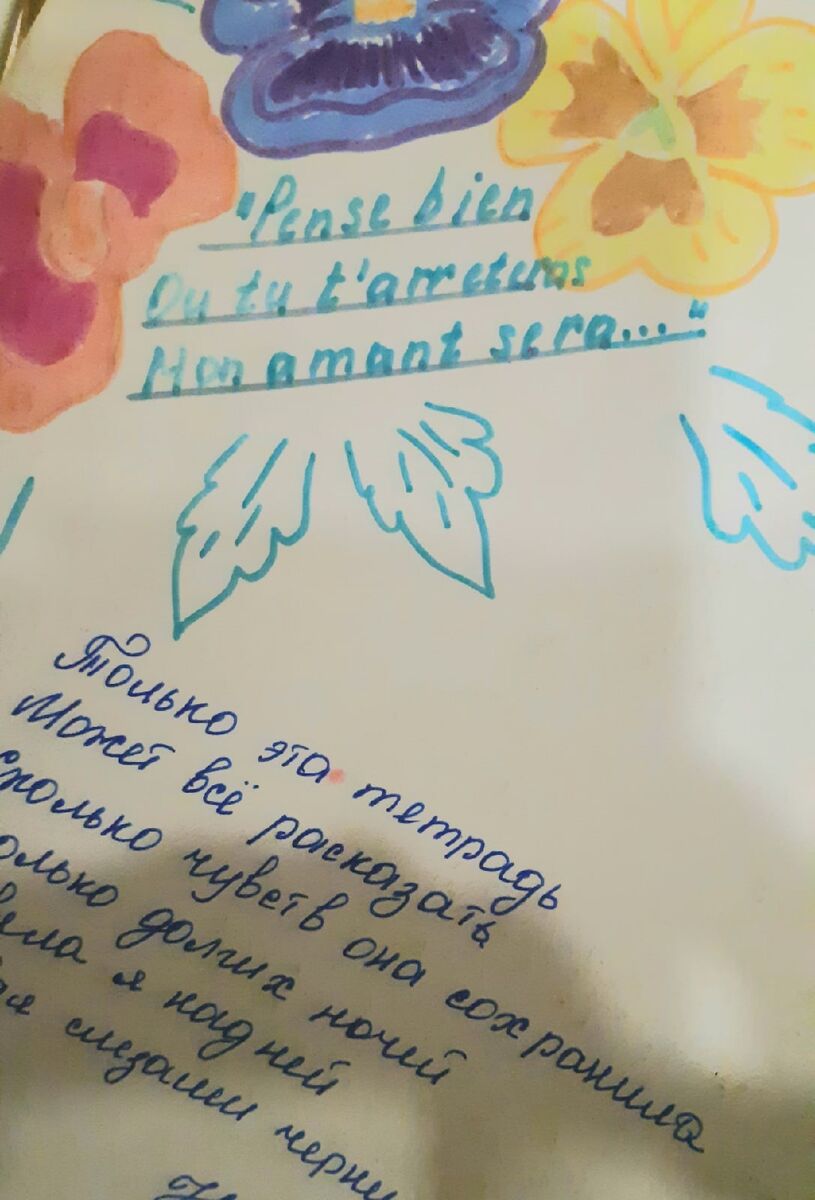 "Pense bien
Ou tu t'arreteras
Mon amant sera..."
Только эта тетрадь
Может всё расказать
сколько чувств она сохранила
олько долгих ночей
вела я над ней
ая слезами черни